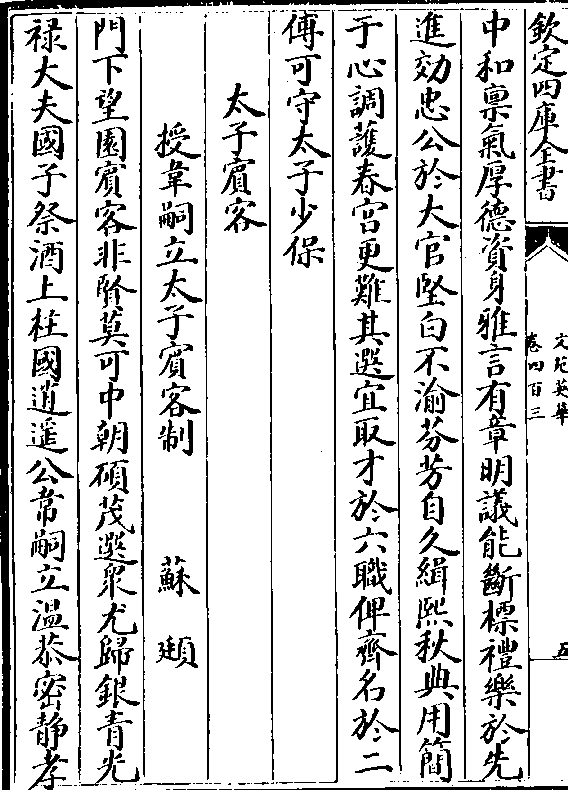 欽定四庫全書
文苑英華
卷四百三
五
中和禀氣厚德資身雅言有章明議能斷標禮樂於先
進効忠公於大官堅白不渝芬芳自久緝熙秋典用簡
于心調護春宫更難其選宜取才於六職俾齊名於二
傅可守太子少保
太子賔客
授韋嗣立太子賔客制 蘇頲
門下望園賔客非賢莫可中朝碩茂選衆尤歸銀青光
禄大夫國子祭酒上柱國逍遥公常嗣立温恭密静孝